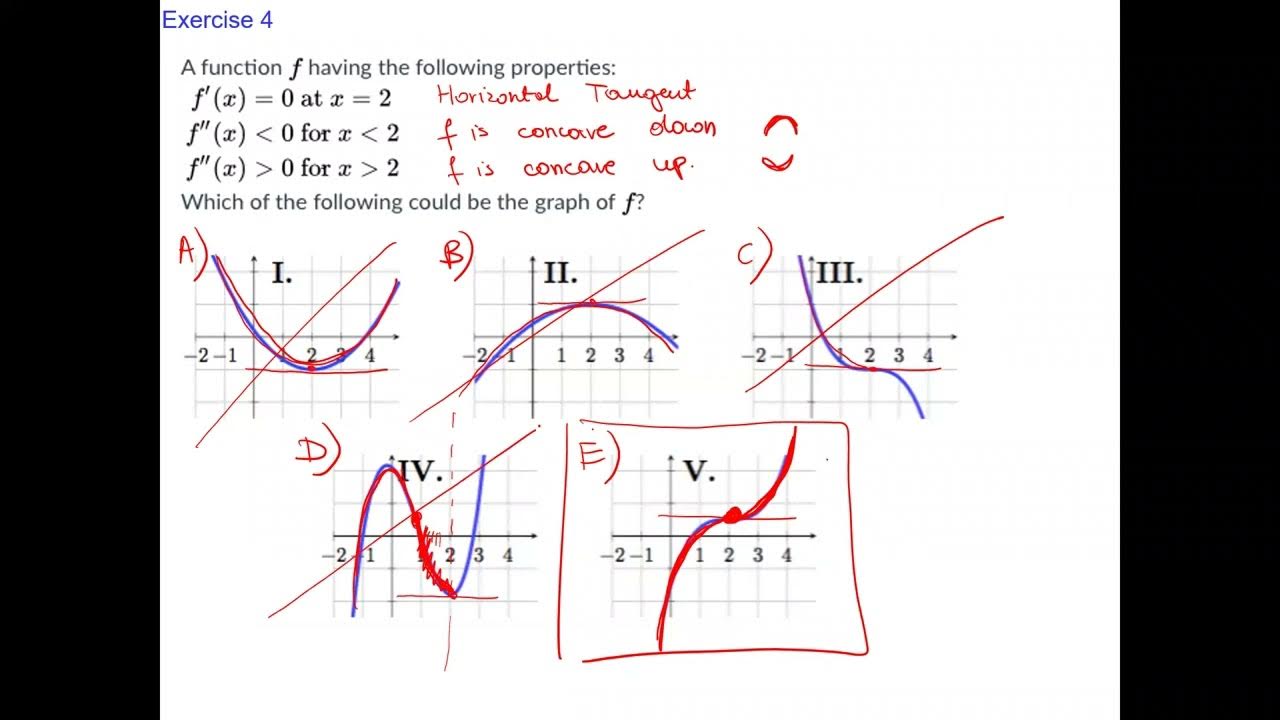 Exercise 4
A function f having the following properties:
f′(x) = 0 at x = 2 Horizontal Tangent
f″(x) < 0 for x < 2 f is concave down
f″(x) > 0 for x > 2 f is concave up.
Which of the following could be the graph of f?
A) I. B) II. C) III.
−2 −1 1 2 3 4 −2 −1 1 2 3 4 −2 −1 1 2 3 4
D) IV. E) V.
−2 −1 2 3 4 −2 −1 1 2 3 4